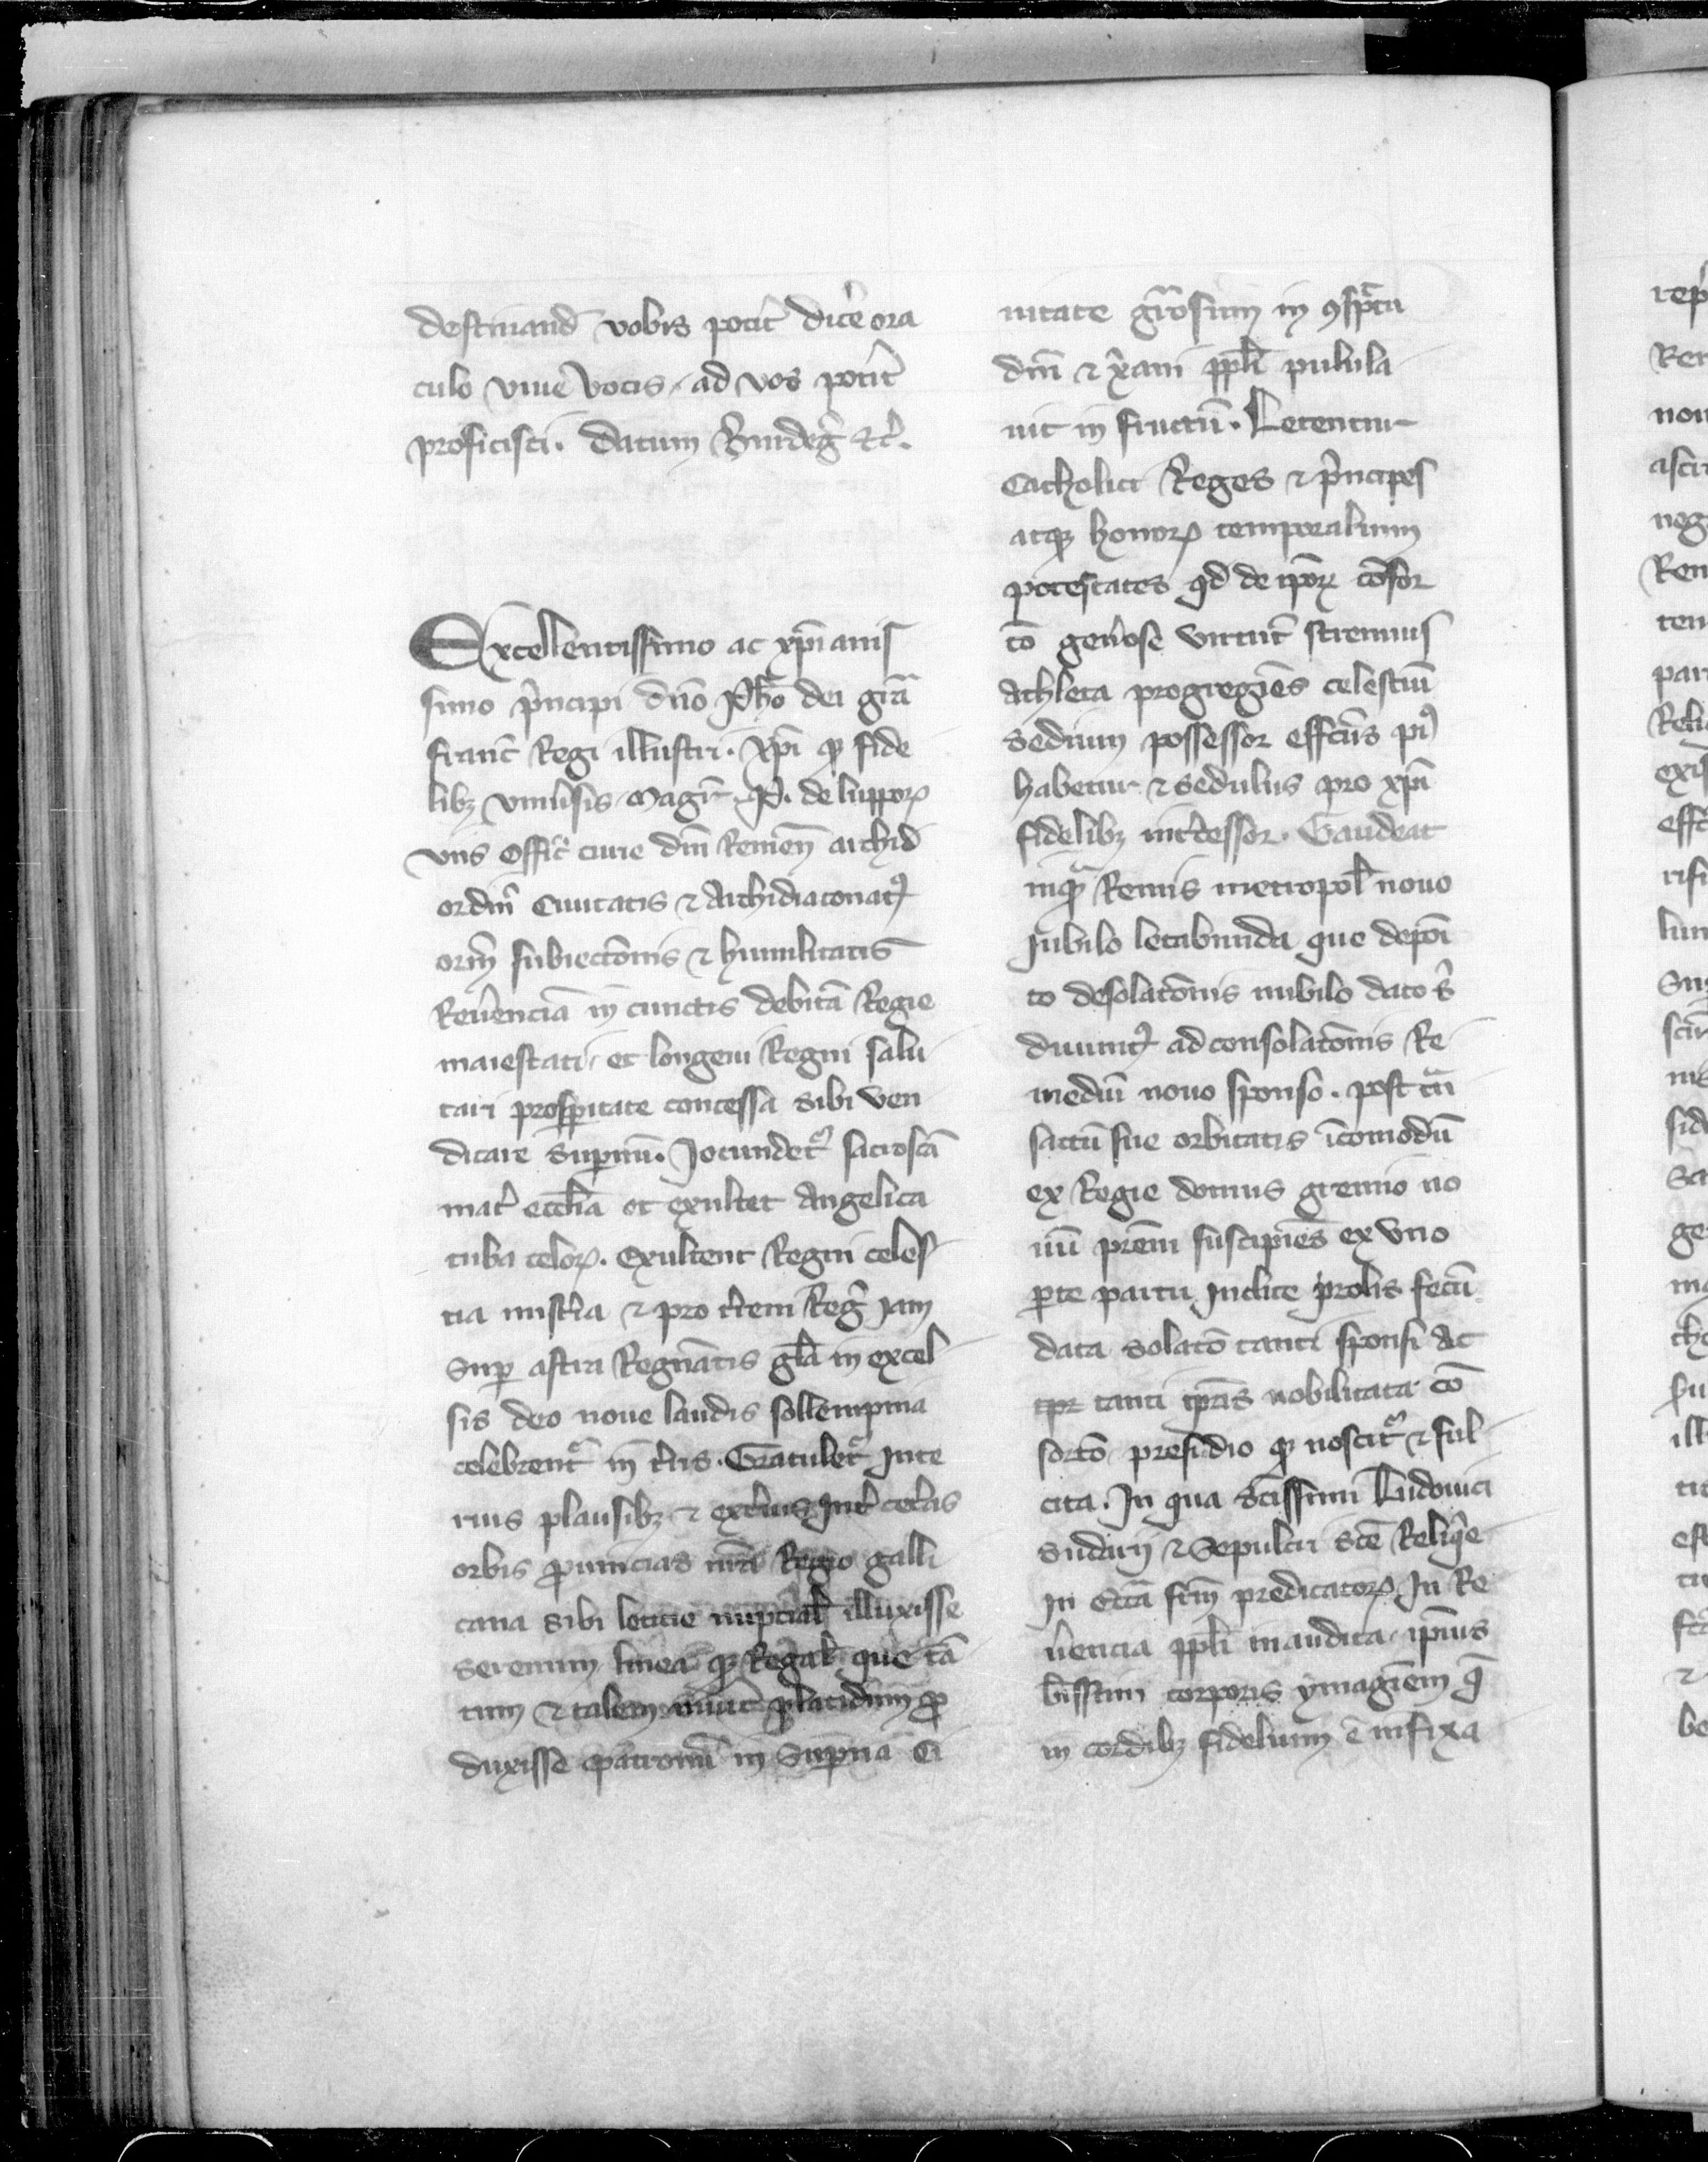 destinand̄ vobis potit᷒ dic̄e ora
culo viue vocis. ad vos potit᷒
proficisci. Datum Burdeg̃ etc̃.
Excellentissimo ac xp̄ianis
simo p̃ncipi dn̄o Ph̄o dei gr̄a
franc̃ Regi illustri. xp̄i qꝫ fide
libꝫ vniũsis Magr̃. P. de luppoꝝ
vnꝰ Offic̃ curie dn̄i Remen̄ archid̄
ordin̄ Ciuitatis ⁊ Archidiaconatꝰ
om̄ subiectōnis ⁊ humilitatis
Reũenciā in cunctis debitā Regie
maiestati. et longeui Regni salu
tari prosperitate concessa sibi ven
dicare Supernū. Jocundet᷑ sacroscā
mat̃ ecclīa et exultet Angelica
tuba celoꝝ. Exultent Regni celes
tia mist̃ia ⁊ pro t̃rem Reg̃ iam
Sup astra Regnātis gl̄a in excel
sis deo noue laudis sollempnia
celebrent᷑ in t̃ris. Gratulet᷑ Inte
rius plausibꝫ ⁊ ext̃ius Int̃ cet̃as
orbis ꝓuincias nr̄a Regio galli
cana sibi leticie nupcial̃ illuxisse
serenum linea qꝫ Regal̃ que tā
tum ⁊ talem placidum ꝓ
duxisse patronū in Superna Ci
uitate gr̄osum in ꝯspc̄tu
dn̄i ⁊ x̃ani ppl̄i pulula
uit in fructū. Letentur
Catholici Reges ⁊ p̃ncipes
atqꝫ honoꝝ temporalium
potestates qd̄ de ip̄oꝝ cōsor
tō geñose virtut̃ strenuus
Athleta progregiēs celestiū
Sedium possessor eff̄cus piꝰ
habetur ⁊ sedulus pro xp̄i
fidelibꝫ int̃cessor. Gaudeat
inqᷓ Remis metropol̃ nouo
Jubilo letabunda que depōi
to desolatōnis nubilo dato s̃
diuinitꝰ ad consolatōnis Re
mediū nouo sponso. post
factū sue orbitatis īcomodū
ex Regie domus gremio no
uū pr̄em suscipiēs ex vno
ꝑte partu Inclite prolis fecū
data solatō tanti sponsi Ac
tanti tp̄ris nobilitata cō
sortō presidio qꝫ noscit᷑ ⁊ ful
cita. In qua sc̄issimi Ludouici
Sudarij ⁊ Sepulcri sc̄e Reliq̃e
In Ecc̄a fr̄m predicatoꝝ In Re
ũencia ppl̄i inaudita. ip̄ius
b̄issimi corporis ymagīem q̄
in cordibꝫ fidelium ē infixa